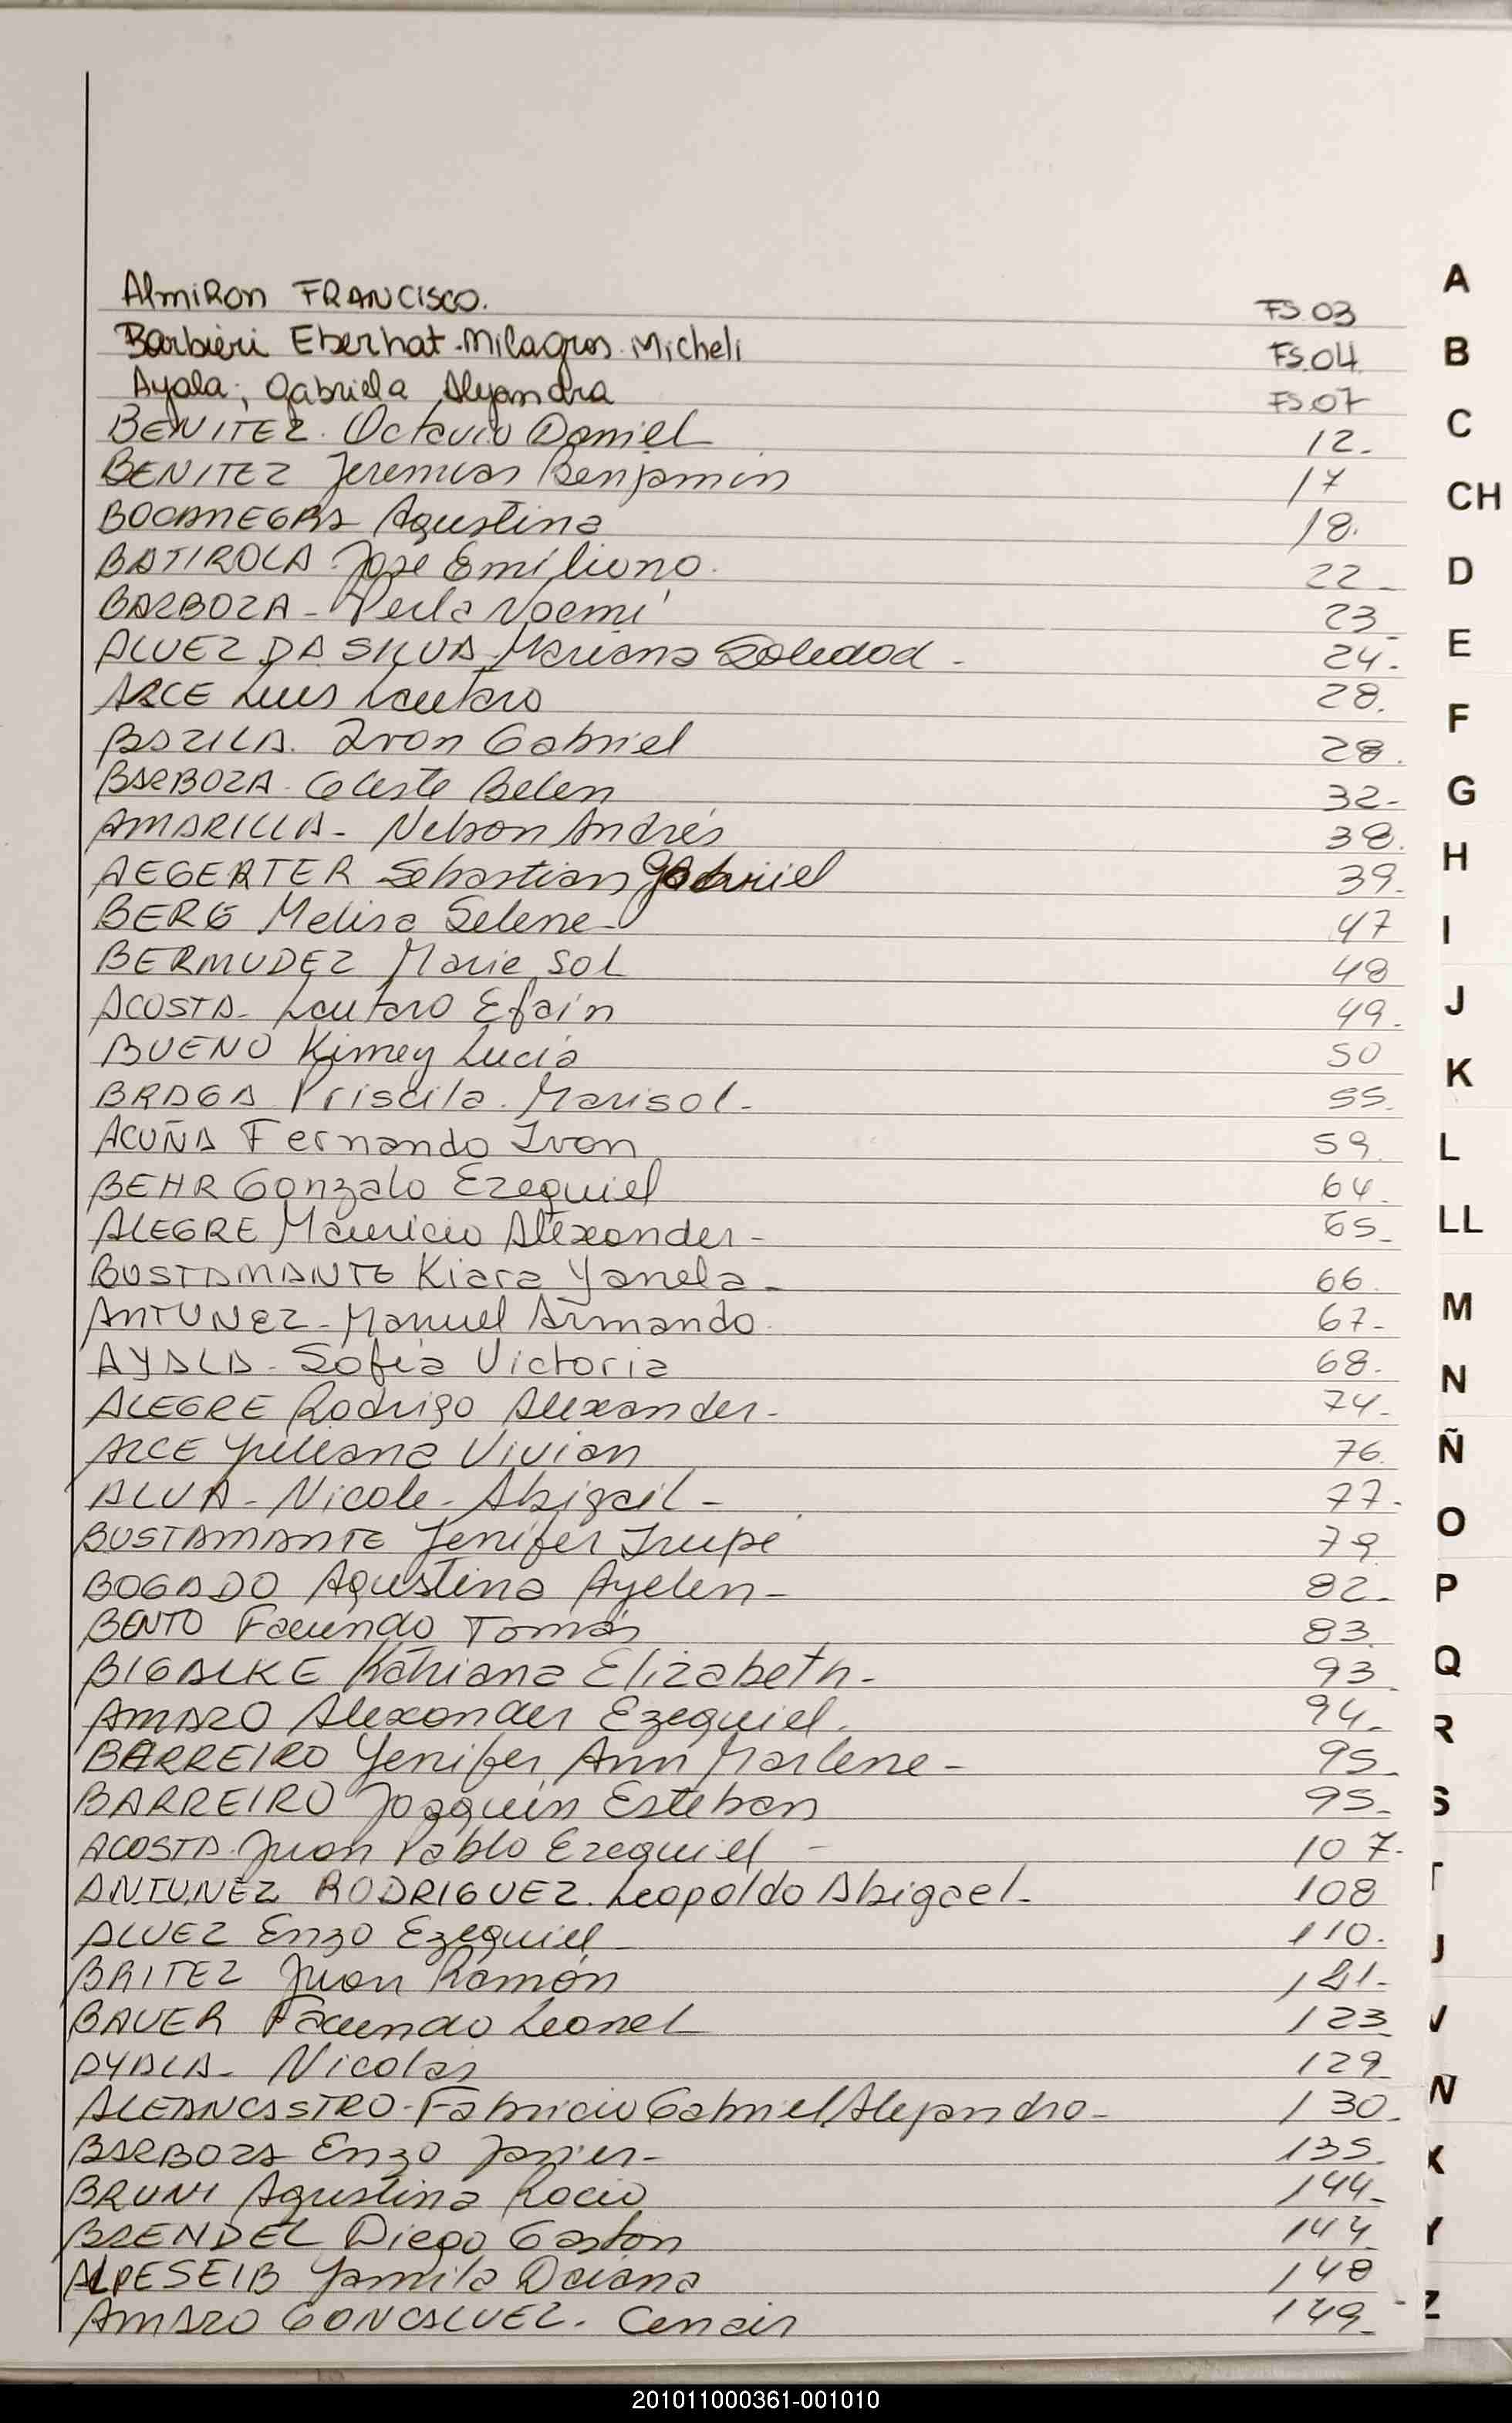 AlmiRon FRANCISCO. FS.03
Barbieri Eberhat. Milagros. Micheli FS.04
Ayala; Gabriela Alejandra FS.07
BENITEZ. Octavio Daniel 12.
BENITEZ Jeremias Benjamin 17
BOCANEGRA Agustina 18.
BATIROLA José Emiliano. 22-
BARBOZA - Perla Noemi 23-
ALVEZ DA SILVA Mariana Soledad - 24-
ARCE Luis Lautaro 28.
BAZILA. Ivan Gabriel 28.
BARBOZA - Celeste Belen 32-
AMARILLA - Nelson Andrés 38.
AEGERTER Sebastian Gabriel 39-
BERG Melisa Selene - 47
BERMUDEZ Marie Sol 48
ACOSTA - Lautaro Efain 49-
BUENO Kimey Lucia 50
BRAGA Priscila. Marisol - 55-
ACUÑA Fernando Ivan 59.
BEHR Gonzalo Ezequiel 64-
ALEGRE Mauricio Alexander - 65-
BUSTAMANTE Kiara Yanela - 66.
ANTUNEZ - Manuel Armando. 67-
AYALA - Sofia Victoria 68.
ALEGRE Rodrigo Alexander - 74-
ARCE Yuliana Vivian 76.
ALVA - Nicole - Abigail - 77-
BUSTAMANTE Jenifer Irupe 79.
BOGADO Agustina Ayelen - 82-
BENTO Facundo Tomás 83.
BIGALKE Katriana Elizabeth - 93
AMARO Alexander Ezequiel. 94-
BARREIRO Yenifer Ann Marlene - 95-
BARREIRO Joaquin Esteban 95-
ACOSTA. Juan Pablo Ezequiel - 107-
ANTUNEZ RODRIGUEZ. Leopoldo Abigael - 108
ALVEZ Enzo Ezequiel 110.
BRITEZ Juan Ramón
BAUER Facundo Leonel 123
AYALA - Nicolas 129
ALEANCASTRO - Fabricio Gabriel Alejandro - 130-
BARBOZA Enzo Javier - 135.
BRUNI Agustina Rocio 144-
BRENDEL Diego Gaston 144
Yamila Daiana 148
AMARO GONCALVEZ. Cenair 149-
A
B
C
CH
D
E
F
G
H
I
J
K
L
LL
M
N
Ñ
O
P
Q
R
S
T
V
X
Y
Z
201011000361-001010